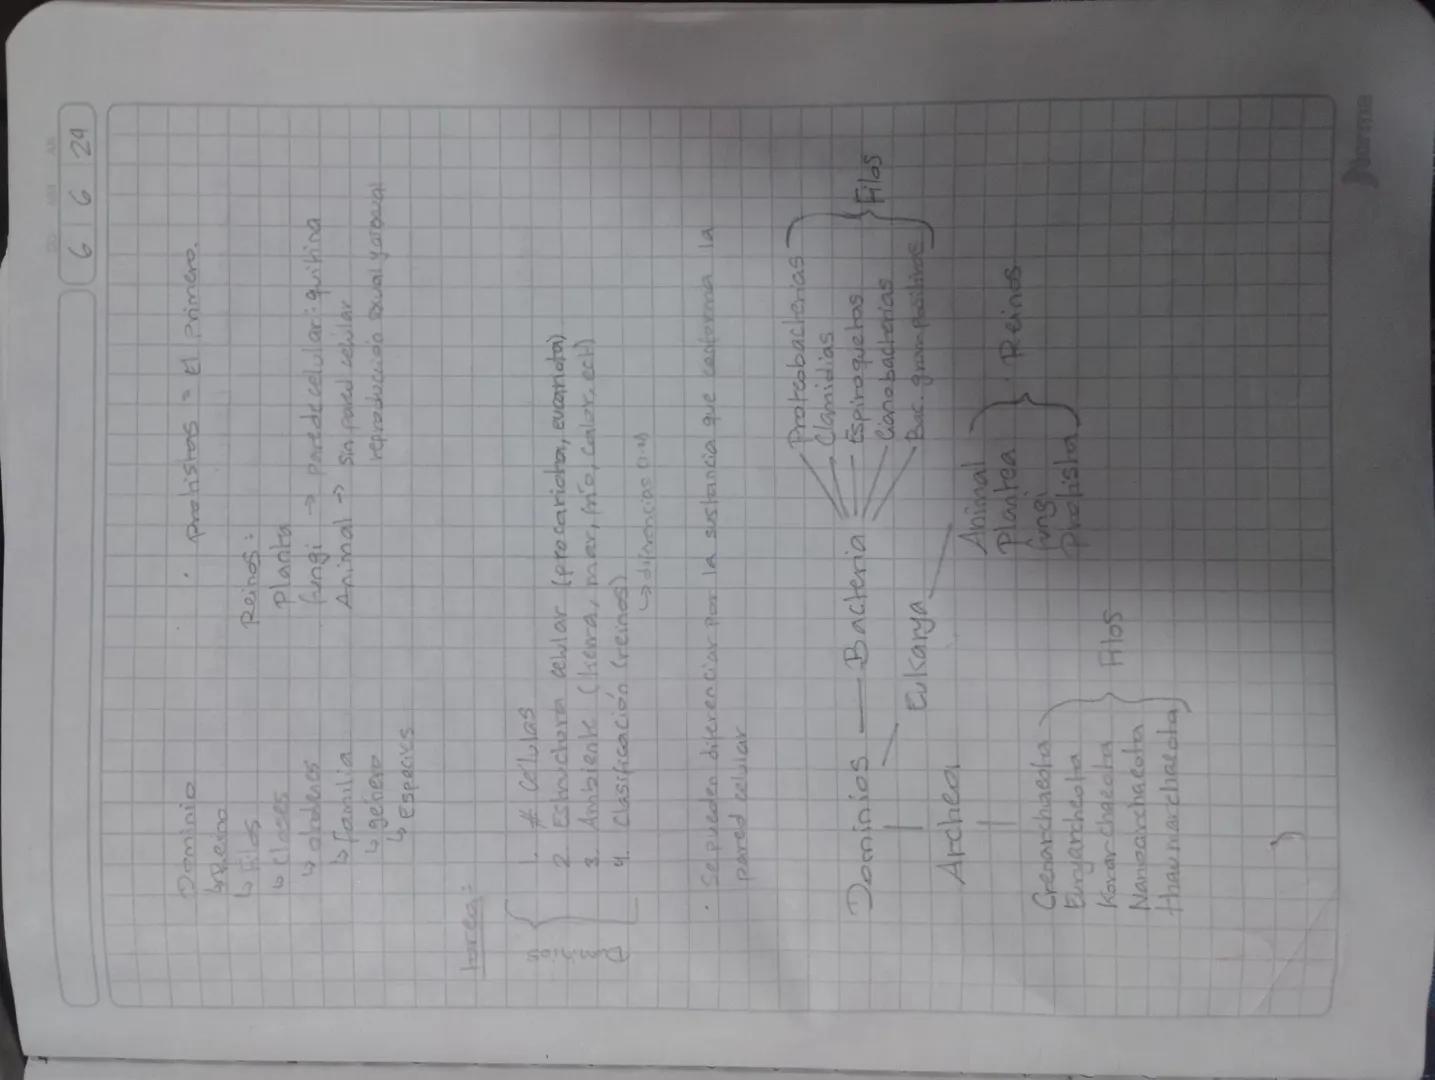 DD MM AA
6 6 24
Dominio
↳ Reino
↳ Filos
↳ Clases
↳ ordenes
↳ familia
↳ género
↳ especies
• protistas = El primero.
Reinos:
planta
fungi → pared celular: quitina
Animal → sin pared celular
reproducción sexual y asexual
tarea:
1. # Células
2. Estructura celular (procariota, eucariota)
3. Ambiente (tierra, mar, frío, calor, ect)
4. Clasificación (reinos)
↳ diferencias
• Se pueden diferenciar por la sustancia que conforma la
pared celular
Dominios — Bacteria
Proteobacterias
Clamidias
Espiroquetas
Cianobacterias
Bac. gram positivas
Filos
Eukarya
Animal
Plantea
fungi
Protista
Reinos
Archea
Crenarchaeota
Euryarcheota
Korarchaeota
Nanoarchaeota
thaumarchaeota
Filos
Norma